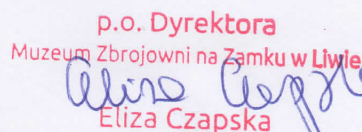 p.o. Dyrektora
Muzeum Zbrojowni na Zamku w Liwie
Eliza Czapska
Eliza Czapska